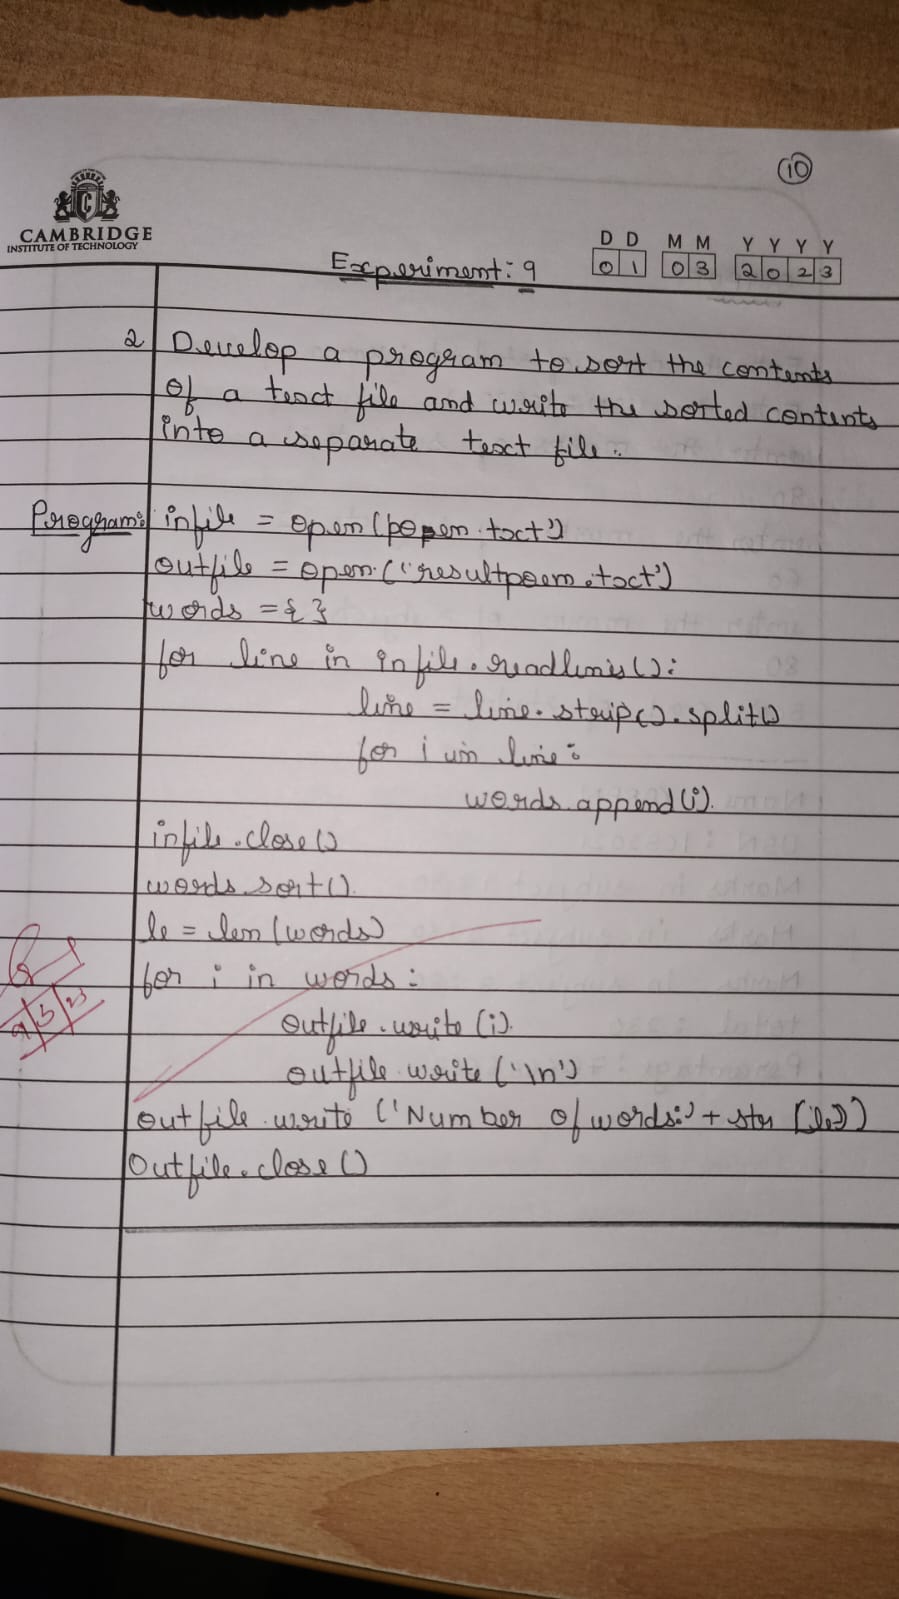 10
CAMBRIDGE
INSTITUTE OF TECHNOLOGY
D D M M Y Y Y Y
Experiment: 9 01 03 2023
2 Develop a program to sort the contents
of a text file and write the sorted contents
into a separate text file.
Program: infile = open(poem.txt')
outfile = open.('resultpoem.txt')
words = { }
for line in infile.readlines():
line = line.strip().split()
for i in line:
words.append(i).
infile.close()
words.sort().
le = len(words)
for i in words:
outfile.write(i).
outfile.write('\n')
outfile.write('Number of words:'+ str(le))
Outfile.close()